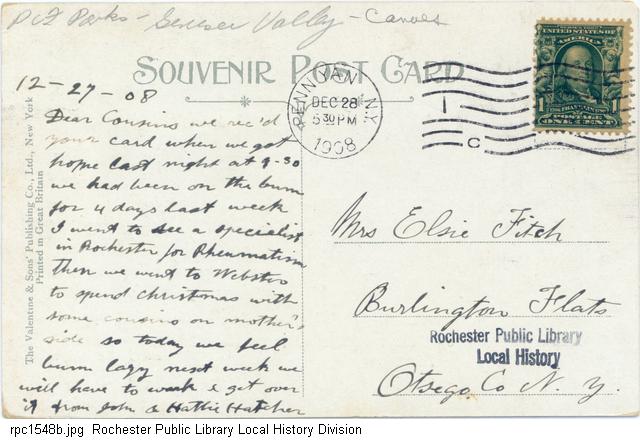 PCF Parks - Genesee Valley - Canoes
SOUVENIR POST CARD
PENN YAN, N.Y.
DEC 28
5 30 PM
1908
1
C
UNITED STATES OF AMERICA
1 1
POSTAGE
ONE CENT
12-27-08
Dear Cousins we rec'd
your card when we got
home last night at 9-30
we had been on the bum
for 4 days last week
I went to see a specialist
in Rochester for Rheumatism
then we went to Webster
to spend christmas with
some cousins on mother's
side so today we feel
bum lazy next week we
will have to work & get over
it from John & Hattie Hatcher
The Valentine & Sons' Publishing Co., Ltd., New York
Printed in Great Britain
Mrs Elsie Fitch
Burlington Flats
Rochester Public Library
Local History
Otsego Co N. Y.
rpc1548b.jpg Rochester Public Library Local History Division